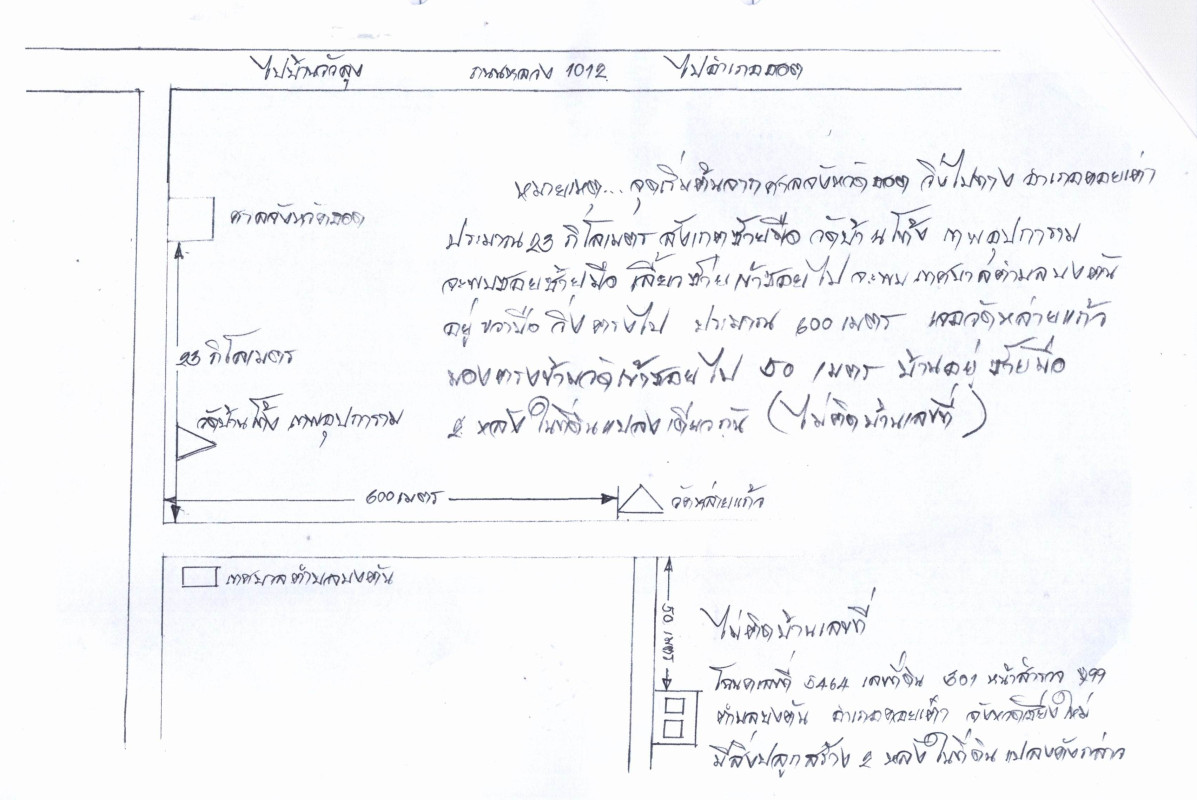 ไปบ้านวังลุง ถนนหลวง 1012 ไปอำเภอฮอด
หมายเหตุ... จุดเริ่มต้นจากศาลจังหวัดฮอด วิ่งไปทาง อำเภอดอยเต่า
ประมาณ 23 กิโลเมตร สังเกตซ้ายมือ วัดบ้านโท้ง เทพอุปการาม
จะพบซอยซ้ายมือ เลี้ยวซ้ายเข้าซอยไป จะพบ เทศบาลตำบลบงตัน
อยู่ ขวามือ วิ่งตรงไป ประมาณ 600 เมตร เจอวัดหล่ายแก้ว
มองตรงข้ามวัดเข้าซอยไป 50 เมตร บ้านอยู่ ซ้ายมือ
2 หลัง ในที่ดินแปลงเดียวกัน (ไม่ติดบ้านเลขที่)
ศาลจังหวัดฮอด
23 กิโลเมตร
วัดบ้านโท้ง เทพอุปการาม
600 เมตร
วัดหล่ายแก้ว
เทศบาลตำบลบงตัน
50 เมตร
ไม่ติดบ้านเลขที่
โฉนดเลขที่ 5464 เลขที่ดิน 501 หน้าสำรวจ
ตำบลบงตัน อำเภอดอยเต่า จังหวัดเชียงใหม่
มีสิ่งปลูกสร้าง 2 หลัง ในที่ดิน แปลงดังกล่าว